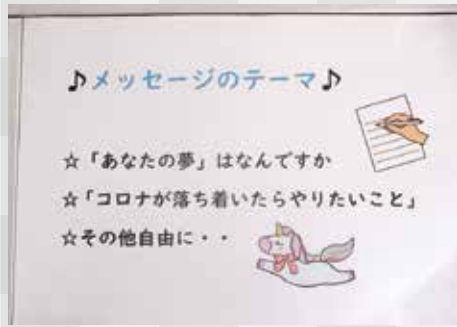 ♪メッセージのテーマ♪
☆「あなたの夢」はなんですか
☆「コロナが落ち着いたらやりたいこと」
☆その他自由に・・